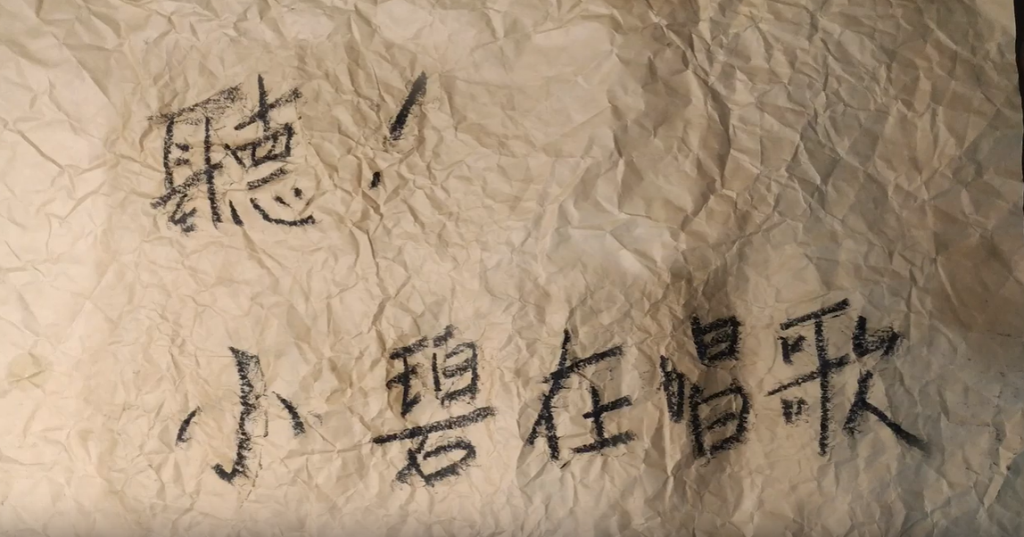 聽!
小碧在唱歌